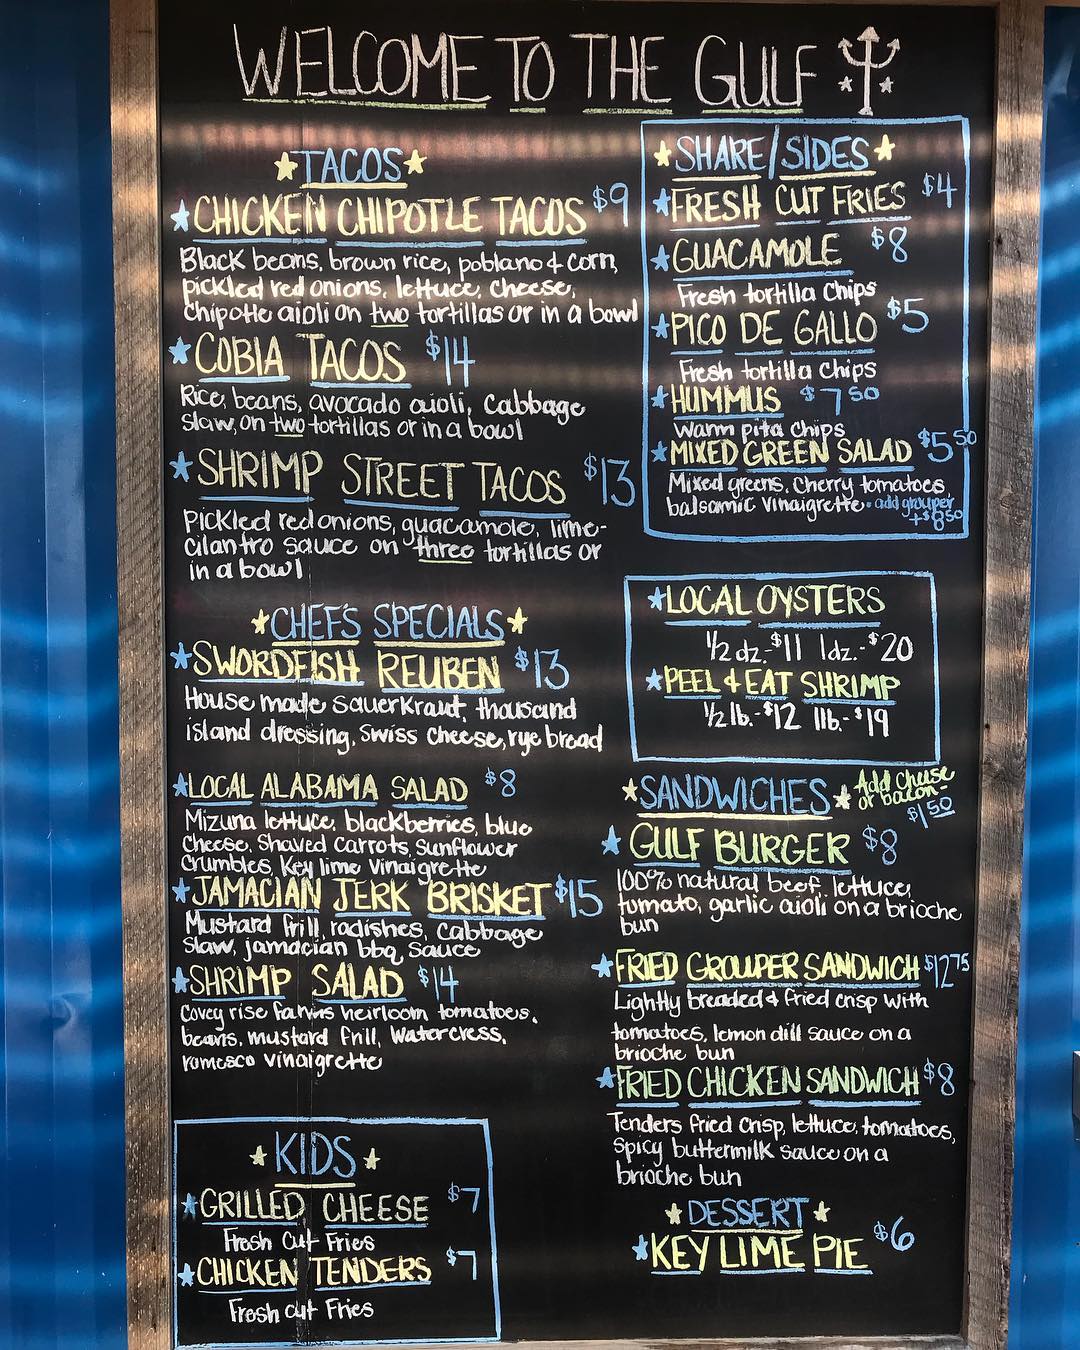 WELCOME TO THE GULF
TACOS
CHICKEN CHIPOTLE TACOS $9
Black beans, brown rice, poblano & corn,
pickled red onions, lettuce, cheese,
chipotle aioli on two tortillas or in a bowl
COBIA TACOS $14
Rice, beans, avocado aioli, cabbage
slaw, on two tortillas or in a bowl
SHRIMP STREET TACOS $13
pickled red onions, guacamole, lime-
cilantro sauce on three tortillas or
in a bowl
CHEF'S SPECIALS
SWORDFISH REUBEN $13
House made sauerkraut, thousand
island dressing, swiss cheese, rye bread
LOCAL ALABAMA SALAD $8
Mizuna lettuce, blackberries, blue
cheese, shaved carrots, sunflower
crumbles, Key lime vinaigrette
JAMACIAN JERK BRISKET $15
Mustard frill, radishes, cabbage
slaw, jamacian bbq sauce
SHRIMP SALAD $14
Covey rise farms heirloom tomatoes,
beans, mustard frill, watercress,
romesco vinaigrette
KIDS
GRILLED CHEESE $7
Fresh Cut Fries
CHICKEN TENDERS $7
Fresh cut Fries
SHARE/SIDES
FRESH CUT FRIES $4
GUACAMOLE $8
Fresh tortilla Chips
PICO DE GALLO $5
Fresh tortilla Chips
HUMMUS $7 50
Warm pita Chips
MIXED GREEN SALAD $5 50
Mixed greens, Cherry tomatoes,
balsamic vinaigrette - add grouper
+$8 50
LOCAL OYSTERS
1/2 dz.-$11 1dz.-$20
PEEL & EAT SHRIMP
1/2 lb.-$12 1lb.-$19
SANDWICHES
Add cheese
or bacon-
$1 50
GULF BURGER $8
100% natural beef, lettuce,
tomato, garlic aioli on a brioche
bun
FRIED GROUPER SANDWICH $12 75
Lightly breaded & fried crisp with
tomatoes, lemon dill sauce on a
brioche bun
FRIED CHICKEN SANDWICH $8
Tenders fried crisp, lettuce, tomatoes,
spicy buttermilk sauce on a
brioche bun
DESSERT
KEY LIME PIE $6